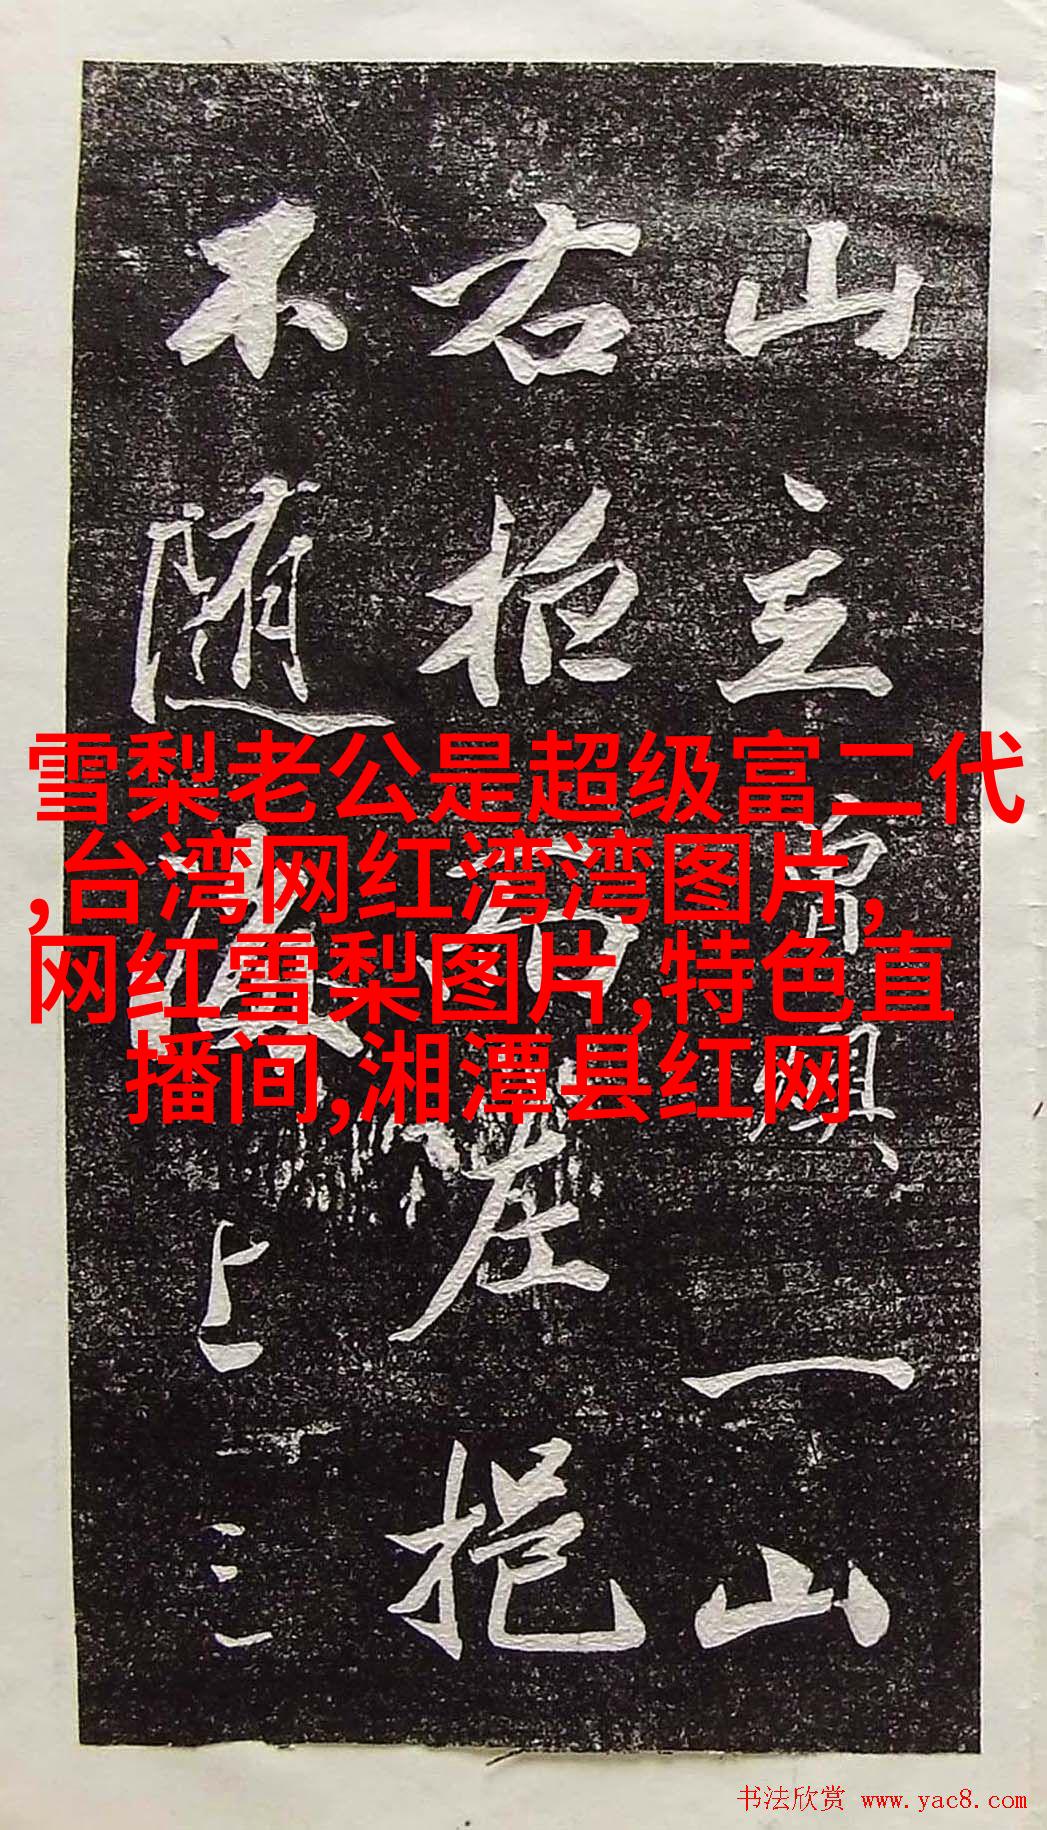 山主 一山
右 而左挹
不随 上三
雪梨老公是超级富二代
,台湾网红湾湾图片,
网红雪梨图片,特色直
播间,湘潭县红网
书法欣赏 www.yac8.com